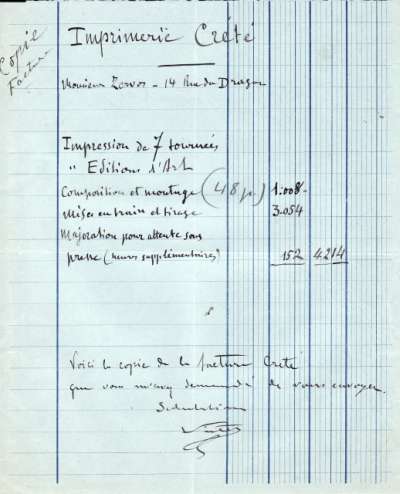 Copie
Facture
Imprimerie Crété
Monsieur Zervos - 14 Rue du Dragon
Impression de 7 tournées
" Editions d'Art
Composition et montage (48 p.) 1.008-
Mises en train et tirage 3.054
Majoration pour attente sous
presse (heures supplémentaires) 152 4214
Voici la copie de la facture Crété
que vous m'avez demandé de vous envoyer.
Salutations